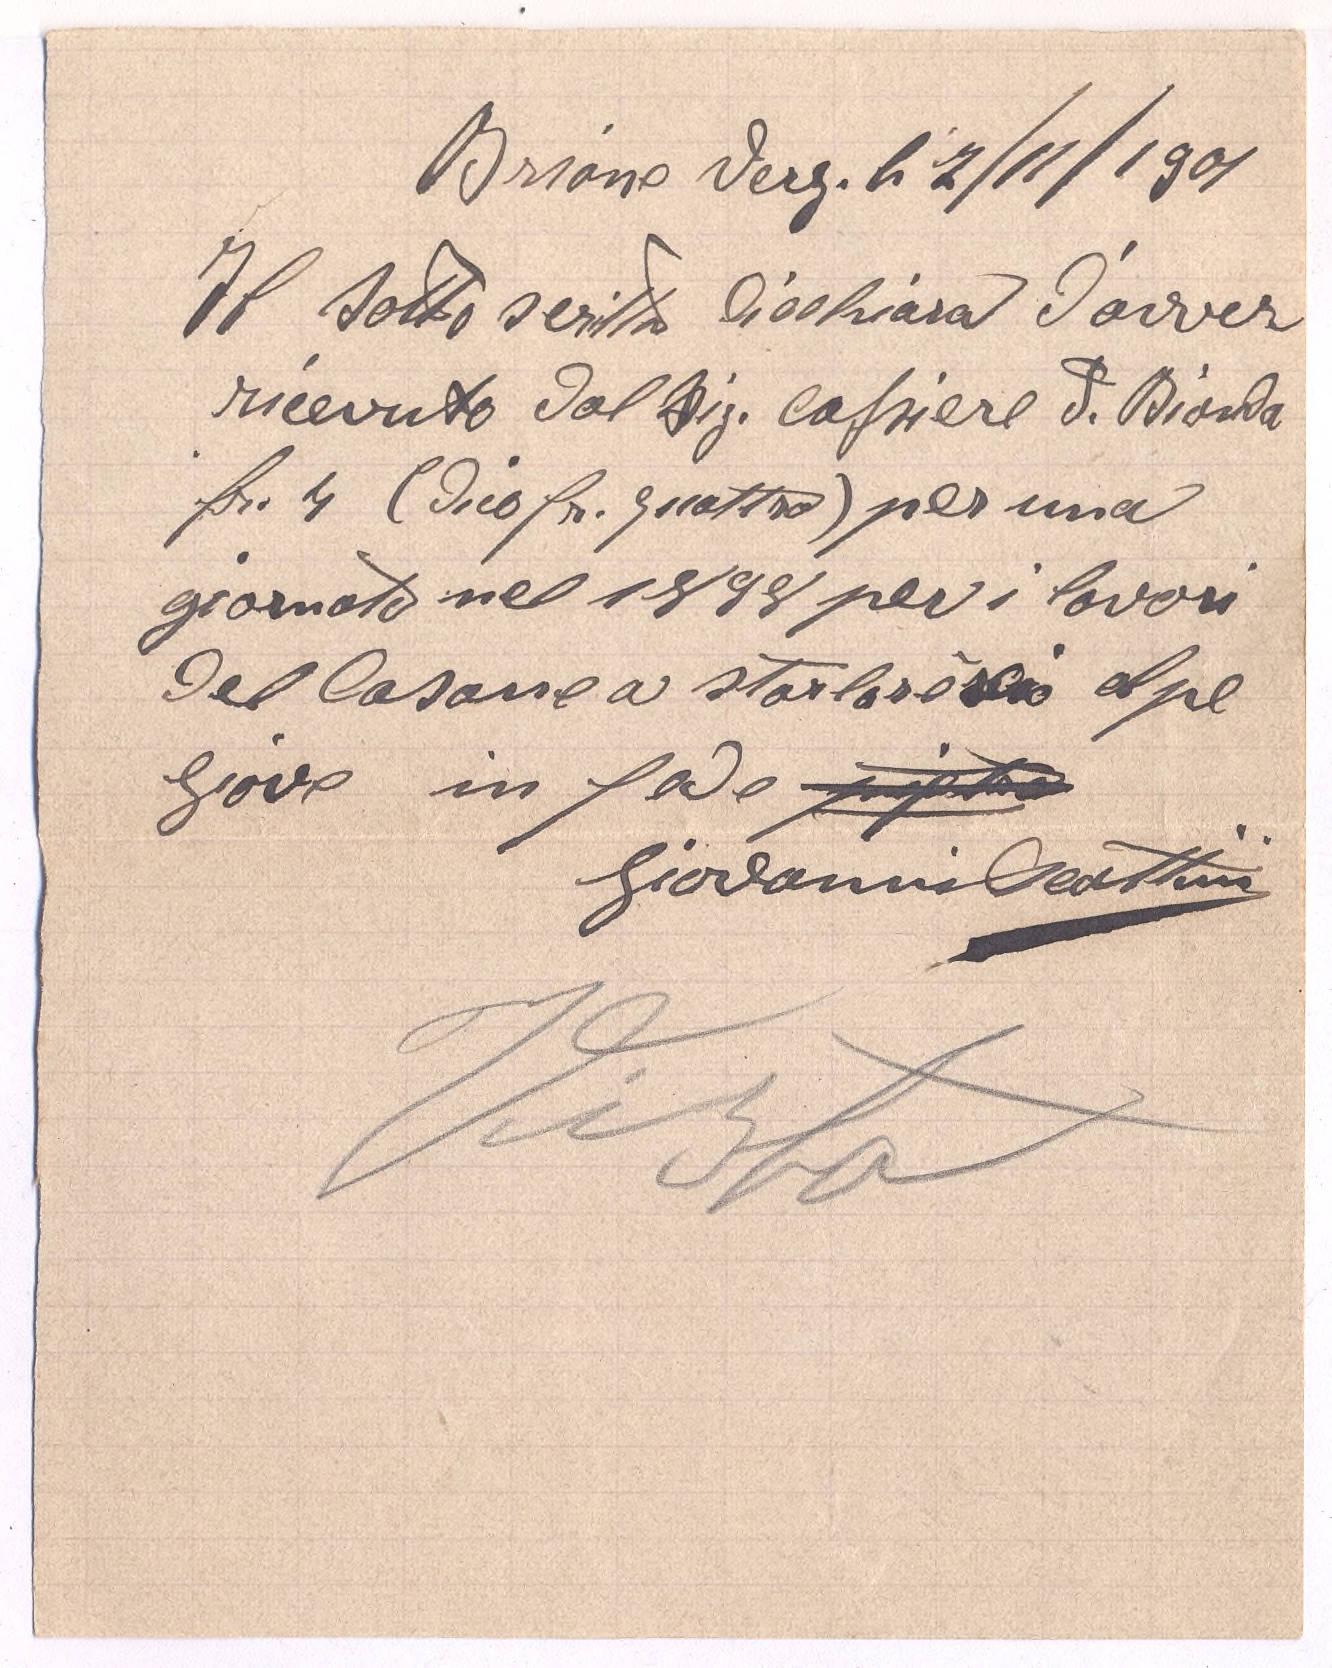 Brione Verz. li 2/11/1901
Il sotto scritto dichiara d'avver
ricevuto dal Sig. cassiere F. Bionda
fr. 4 (dico fr. quattro) per una
giornata nel 1898 per i lavori
del Casone a alpe
Giove in fede
Giovanni
Visto